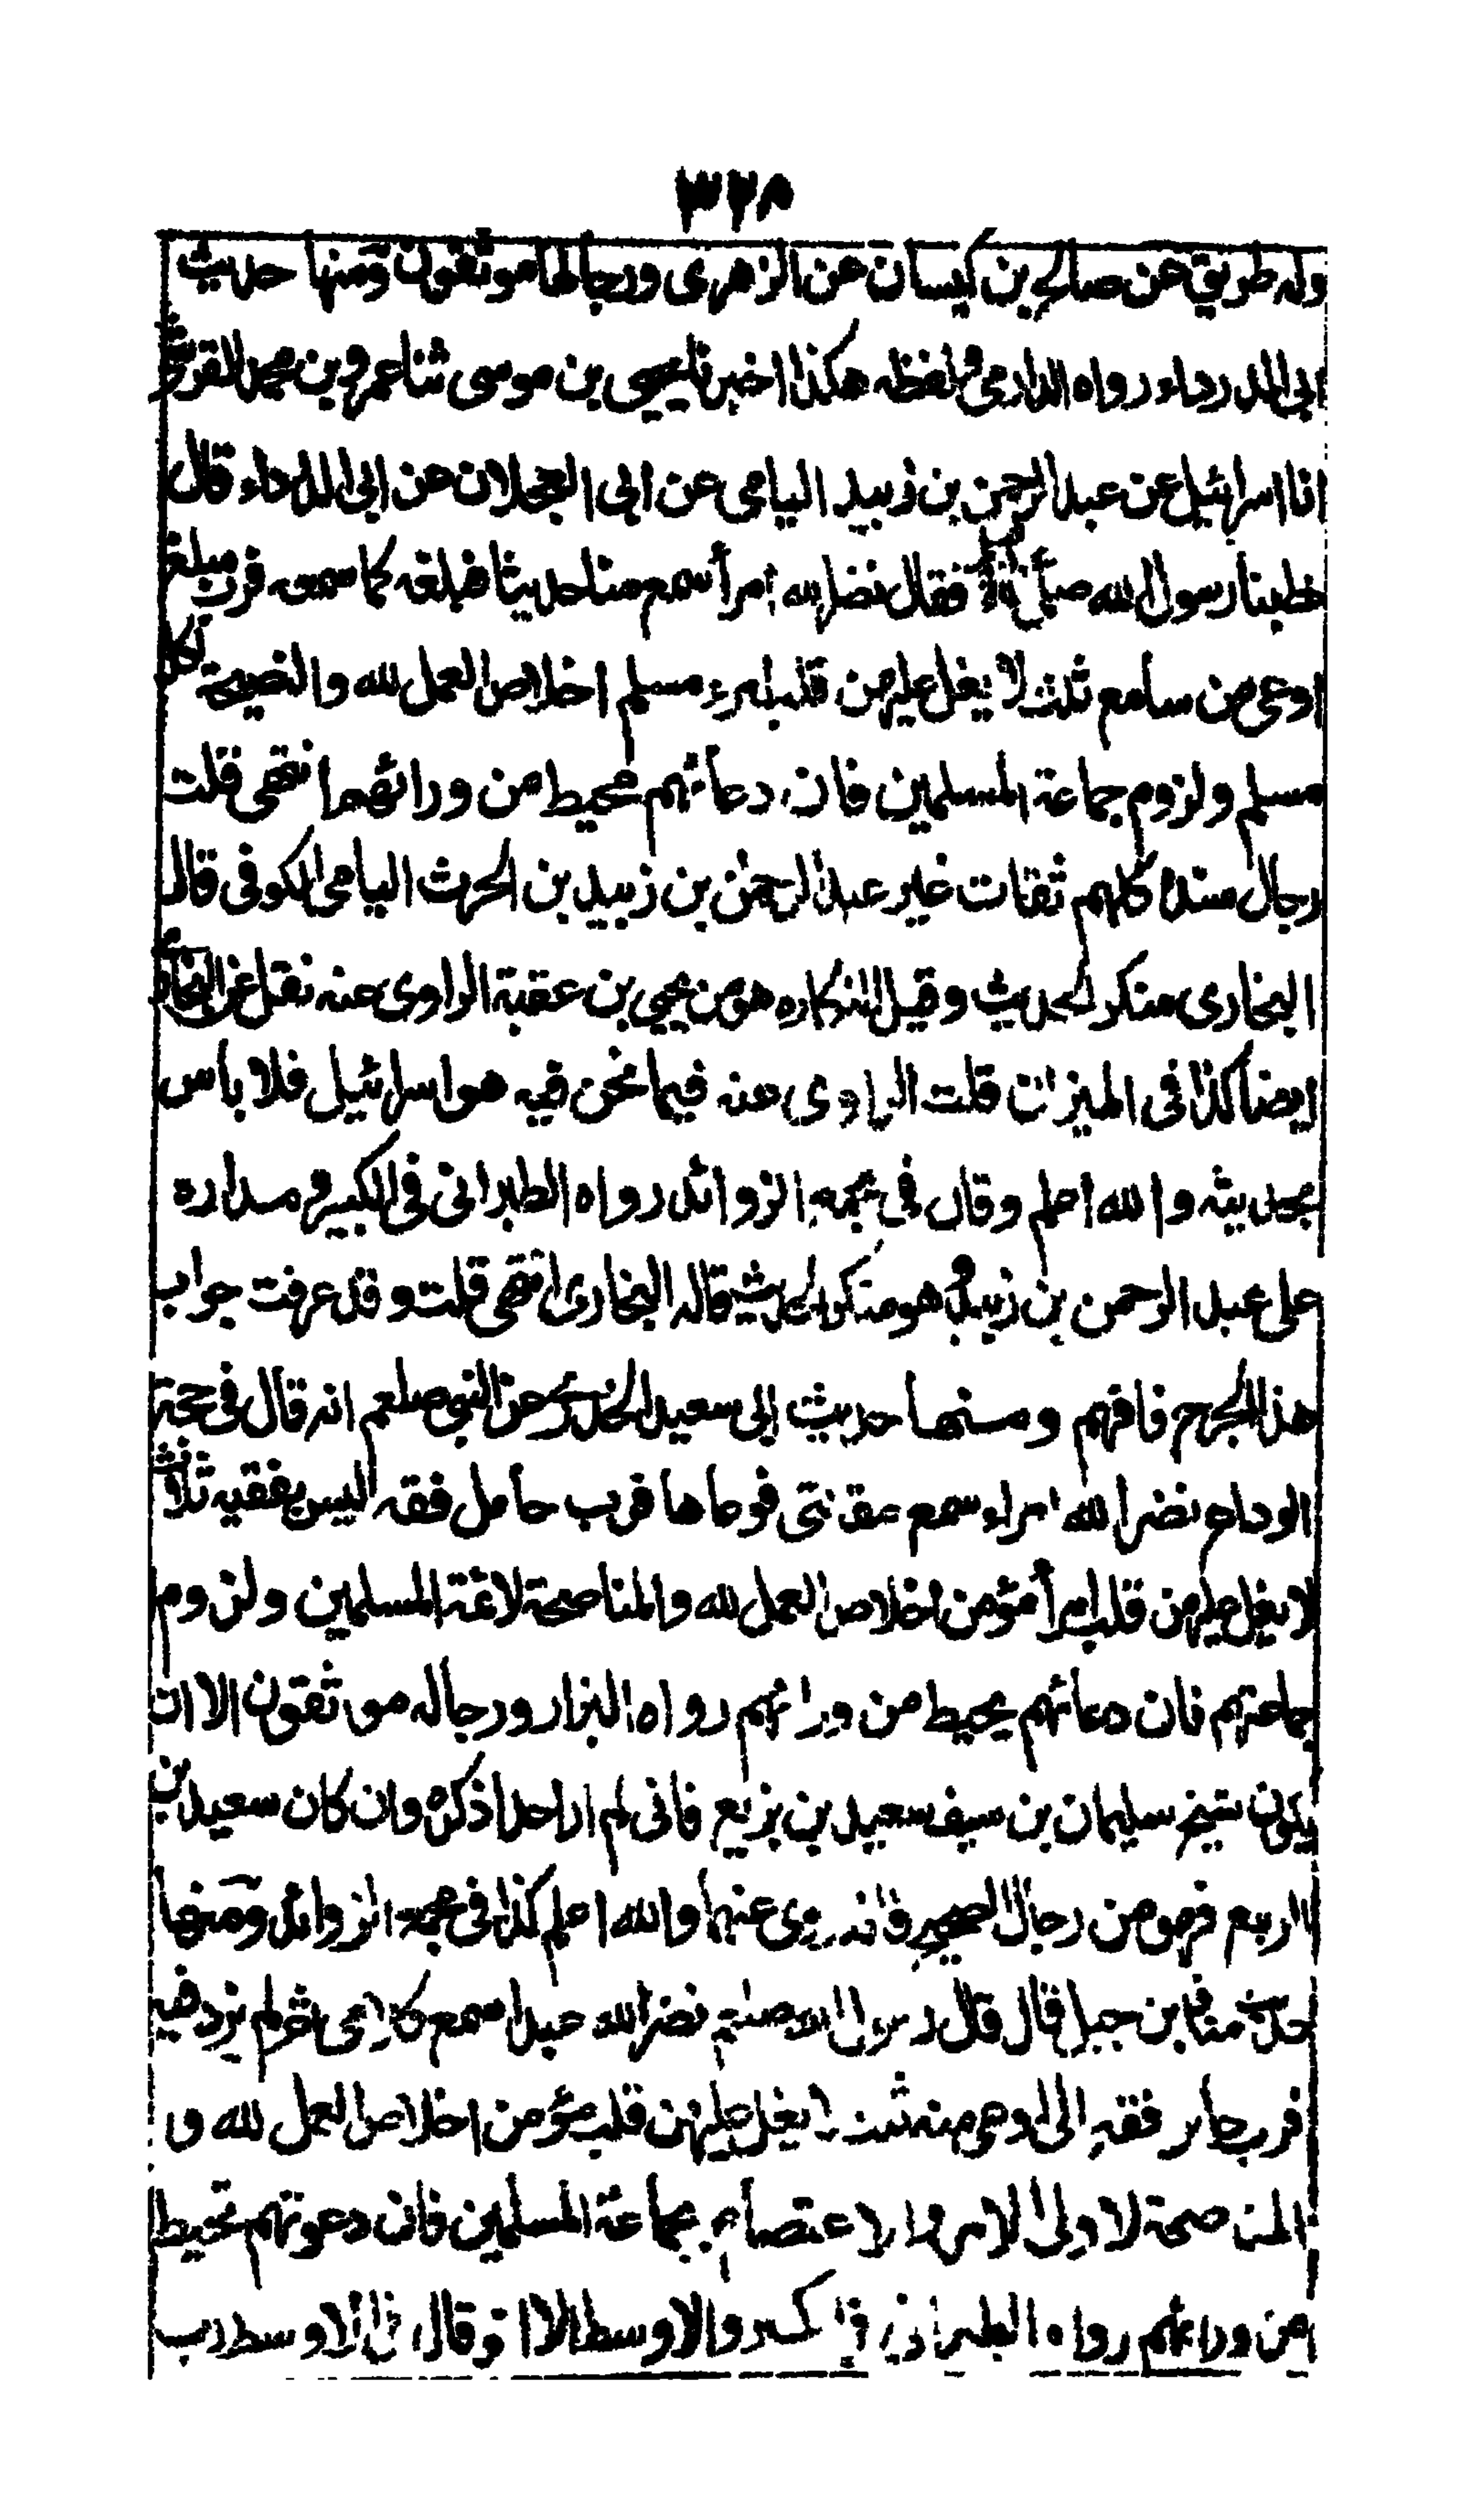 ٣٢٨
وله طريق عن صالح بن كيسان عن الزهري ورجالها موثقون ومنها حديث
ابي الدرداء رواه الدارمي ولفظه هكذا اخبرنا يحيى بن موسى ثنا عمرو بن محمد القرشي
انا اسرائيل عن عبد الرحمن بن زبيد اليامي عن ابي العجلان عن ابي الدرداء قال
خطبنا رسول الله صلى فقال نضر الله امرأ سمع منا حديثا فبلغه كما سمعه فرب مبلغ
اوعى من سامع ثلث لا يغل عليهن قلب امرء مسلم اخلاص العمل لله والنصيحة لكل
مسلم ولزوم جماعة المسلمين فان دعائهم محيط من ورائهم انتهى قلت
رجال سنده كلهم ثقات غير عبد الرحمن بن زبيد بن الحرث اليامي الكوفي قال
البخاري منكر الحديث وقيل النكاره هو من يحيى بن عقبة الراوي عنه نقل عن البخاري
ايضا كذا في الميزان قلت الراوي عنه فيما نحن فيه هو اسرائيل فلا باس
بحديثه والله اعلم وقال في مجمع الزوائد رواه الطبراني في الكبير ومداره
على عبد الرحمن بن زبيد وهو منكر الحديث قاله البخاري انتهى قلت وقد عرفت جواب
هذا الجرح فافهم ومنها حديث ابي سعيد الخدري عن النبي صلعم انه قال في حجة
الوداع نضر الله امراء سمع مقالتي فوعاها فرب حامل فقه ليس بفقيه ثلاث
لا يغل عليهن قلب امرأ مؤمن اخلاص العمل لله والمناصحة لائمة المسلمين ولزوم
جماعتهم فان دعائهم يحيط من ورائهم رواه البزار ورجاله موثقون الا ان
يكون شيخ سليمان بن سيف سعيد بن بزيع فاني لم ار احدا ذكره وان كان سعيد بن
الربيع فهو من رجال الصحيح فانه روى عنهما والله اعلم كذا في مجمع الزوائد ومنها
حديث معاذ بن جبل قال قال رسول الله صلعم نضر الله عبدا سمع كلامي ثم لم يزد فيه
فرب حامل فقه الى اوعى منه ثلث لا يغل عليهن قلب مؤمن اخلاص العمل لله و
المناصحة لاولى الامر والاعتصام بجماعة المسلمين فان دعوتهم تحيط
من ورائهم رواه الطبراني في الكبير والاوسط الا انه قال في الاوسط رب